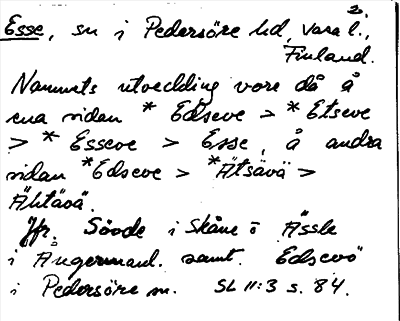 2.
Esse, sn i Pedersöre hd, Vasa l.,
Finland.
Namnets utveckling vore då å
ena sidan * Edseve > * Etseve
> * Esseve > Esse, å andra
sidan *Edseve > *Ätsävä >
Ähtävä.
Jfr. Sövde i Skåne o Ässle
i Ångermanl. samt Edsevö
i Pedersöre sn. SL 11:3 s. 84.